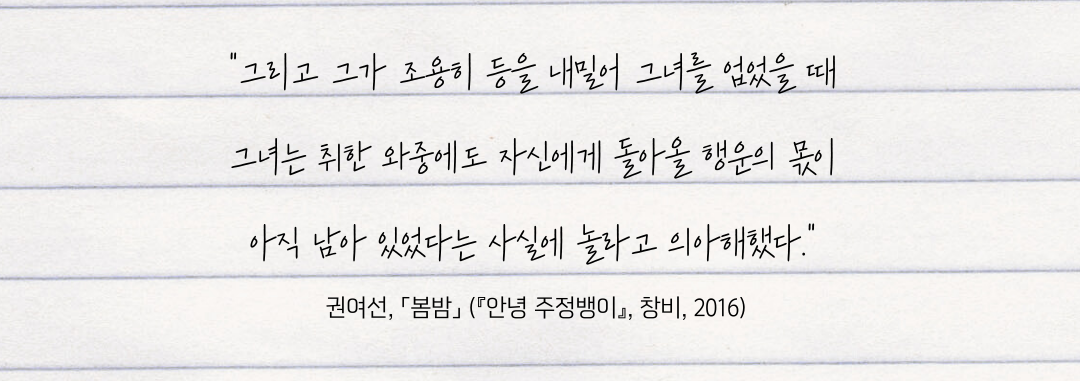 "그리고 그가 조용히 등을 내밀어 그녀를 업었을 때
그녀는 취한 와중에도 자신에게 돌아올 행운의 몫이
아직 남아 있었다는 사실에 놀라고 의아해했다."
권여선, 「봄밤」 (『안녕 주정뱅이』, 창비, 2016)